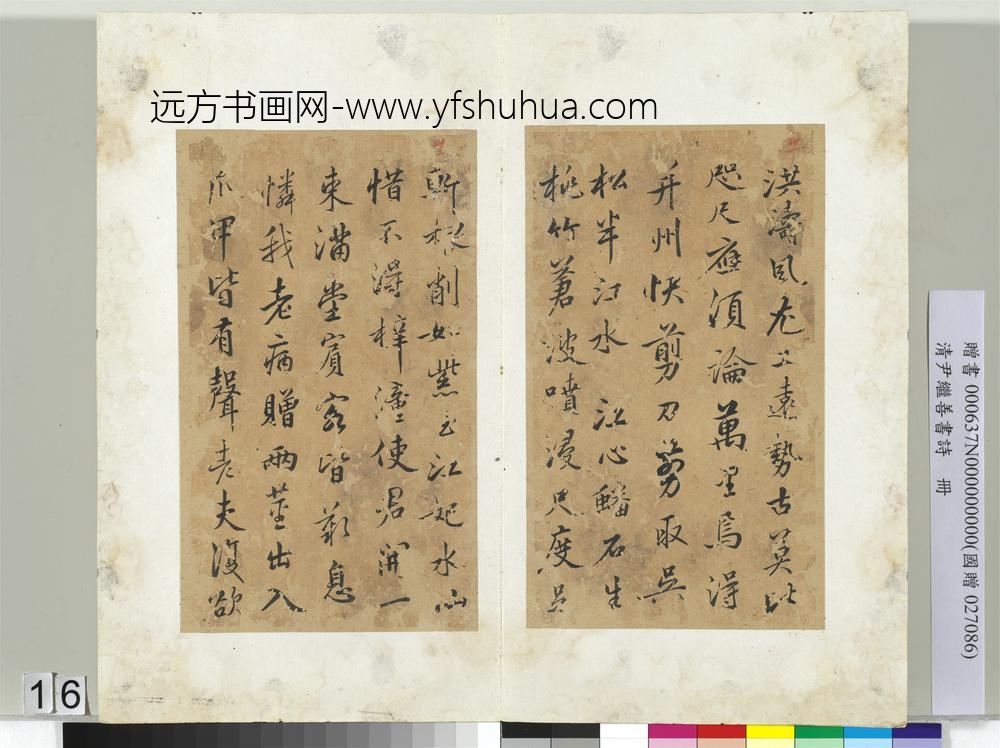 远方书画网-www.yfshuhua.com
洪濤風尤工遠勢古莫比
咫尺應須論萬里焉得
并州快剪刀剪取吳
松半江水 江心蟠石生
桃竹蒼波噴浸尺度足
斬根削如紫玉江妃水仙
惜不得梓潼使君開一
束滿堂賓客皆歎息
憐我老病贈兩莖出入
爪甲皆有聲老夫復欲
贈書 000637N000000000(國贈 027086)
清尹繼善書詩 冊
16